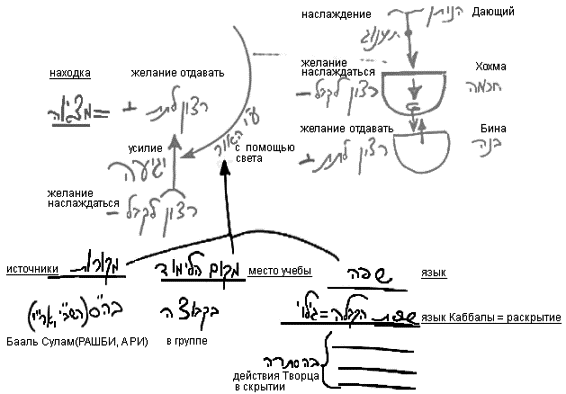 наслаждение הנותן Дающий
תענוג
желание наслаждаться
רצון לקבל –
Хохма
חכמה
желание отдавать
רצון לתת +
Бина
בינה
находка
מציאה =
желание отдавать
רצון לתת +
усилие
יגיעה
с помощью света
ע"י האור
желание наслаждаться
רצון לקבל –
источники מקורות
מקום הלימוד место учебы
שפה язык
בה"ס (רשב"י, אר"י)
Бааль Сулам(РАШБИ, АРИ)
בקבוצה
в группе
שפת הקבלה = גילוי язык Каббалы = раскрытие
בהסתרה
действия Творца
в скрытии